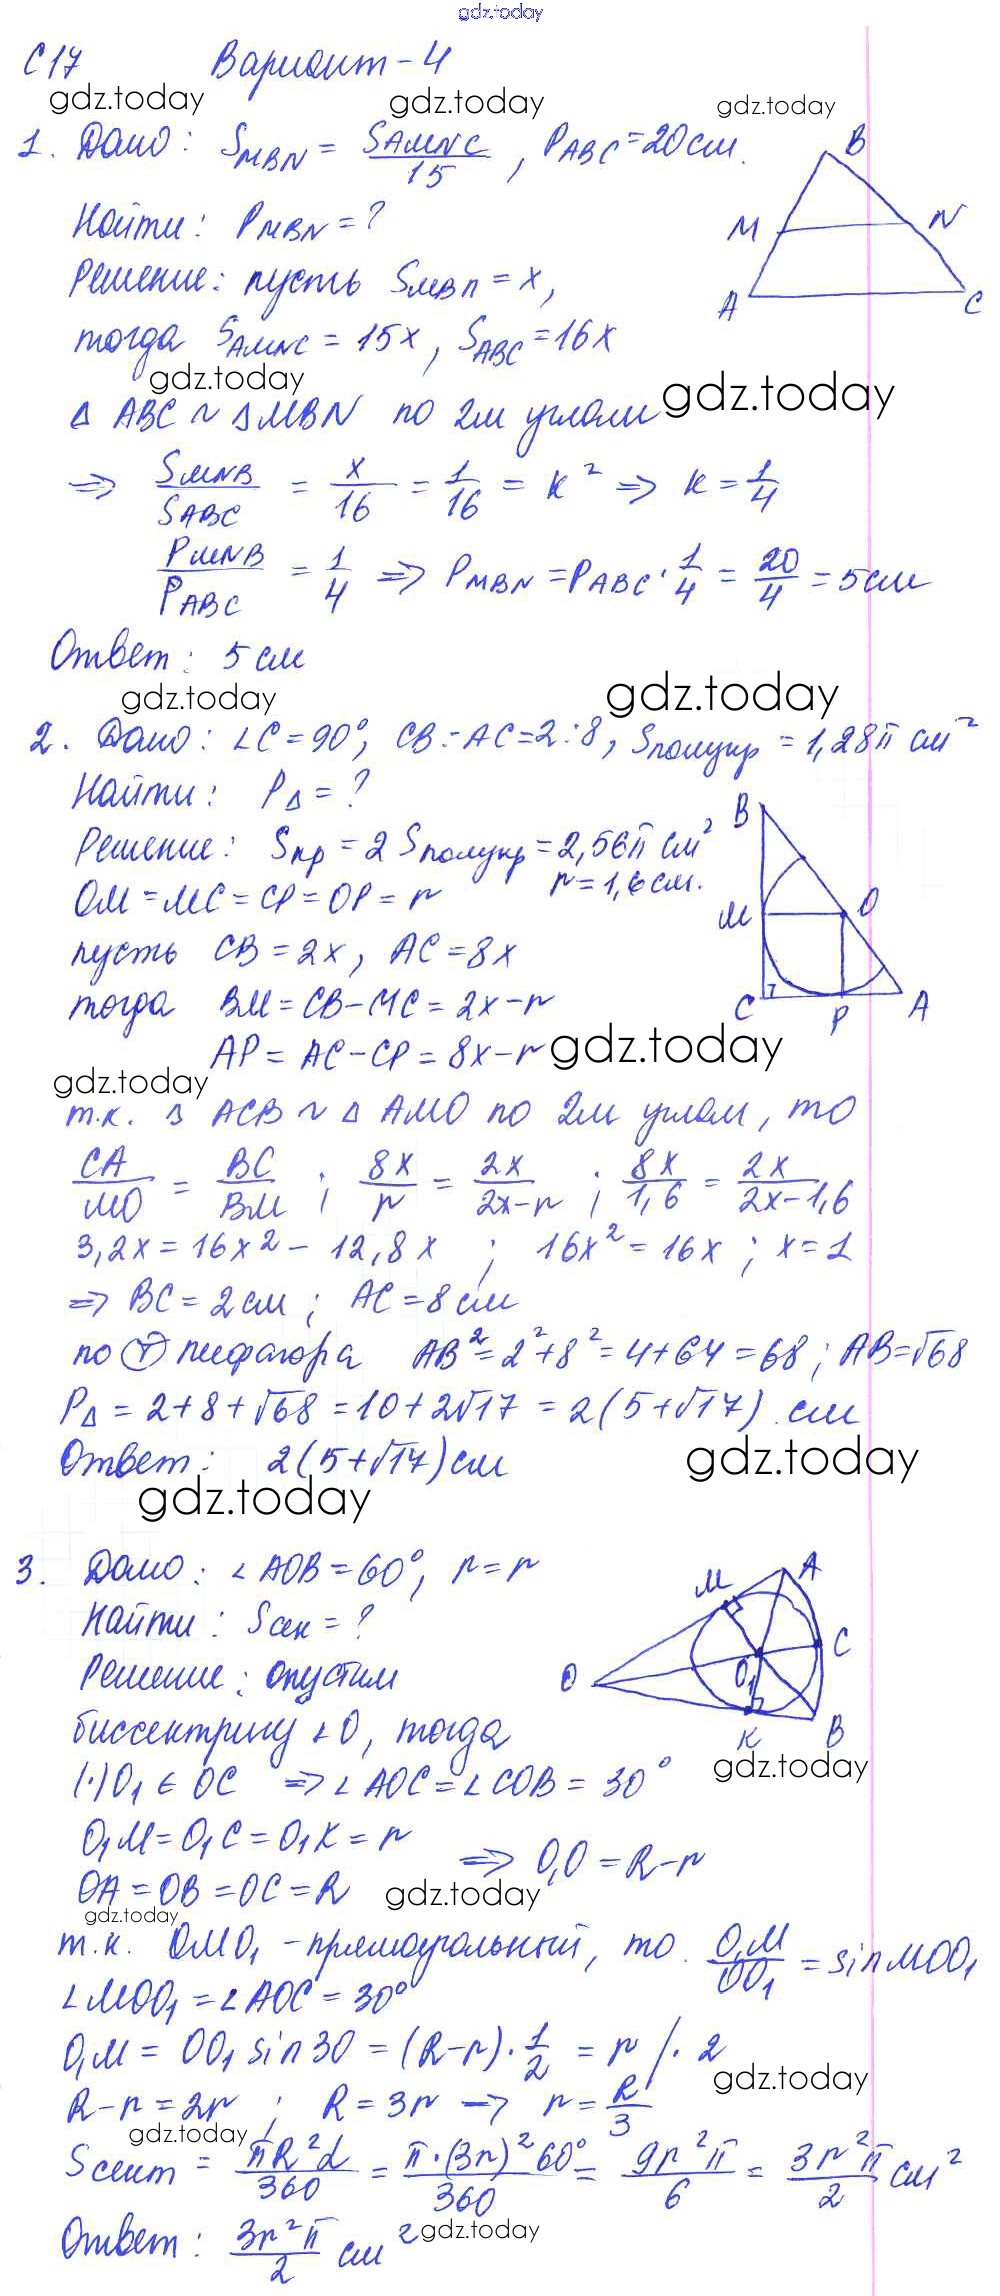 gdz.today
С17 Вариант-4
gdz.today gdz.today gdz.today
1. Дано: S_MBN = S_AMNC/15, P_ABC = 20 см.
Найти: P_MBN = ?
Решение: пусть S_MBN = x,
тогда S_AMNC = 15x, S_ABC = 16x
B
M N
A C
gdz.today gdz.today
Δ ABC ~ Δ MBN по 2м углам
=> S_MNB/S_ABC = x/16 = 1/16 = k² => k = 1/4
P_MNB/P_ABC = 1/4 => P_MBN = P_ABC · 1/4 = 20/4 = 5 см
Ответ: 5 см
gdz.today gdz.today
2. Дано: ∠C = 90°, CB:AC = 2:8, S_полукр = 1,28π см²
Найти: P_Δ = ?
Решение: S_кр = 2 S_полукр = 2,56π см²
r = 1,6 см.
OM = MC = CP = OP = r
пусть CB = 2x, AC = 8x
тогда BM = CB - MC = 2x - r
AP = AC - CP = 8x - r
B
M O
C P A
gdz.today gdz.today
т.к. Δ ACB ~ Δ AMO по 2м углам, то
CA/MO = BC/BM ; 8x/r = 2x/(2x-r) ; 8x/1,6 = 2x/(2x-1,6)
3,2x = 16x² - 12,8x ; 16x² = 16x ; x = 1
=> BC = 2 см ; AC = 8 см
по Т Пифагора AB² = 2² + 8² = 4 + 64 = 68 ; AB = √68
P_Δ = 2 + 8 + √68 = 10 + 2√17 = 2(5+√17) см
Ответ: 2(5+√17) см
gdz.today gdz.today
3. Дано: ∠AOB = 60°, r = r
Найти: S_сек = ?
Решение: Опустим
биссектрису ∠O, тогда
(·) O₁ ∈ OC => ∠AOC = ∠COB = 30°
O₁M = O₁C = O₁K = r
OA = OB = OC = R
=> O₁O = R - r
M A
O O₁ C
K B
gdz.today
gdz.today
gdz.today
т.к. OMO₁ - прямоугольный, то O₁M/OO₁ = sin MOO₁
∠MOO₁ = ∠AOC = 30°
O₁M = OO₁ sin 30 = (R-r) · 1/2 = r /· 2
gdz.today
R - r = 2r ; R = 3r => r = R/3
gdz.today
S_сект = πR²α/360 = π·(3r)²60°/360 = 9r²π/6 = 3r²π/2 см²
Ответ: 3r²π/2 см²
gdz.today